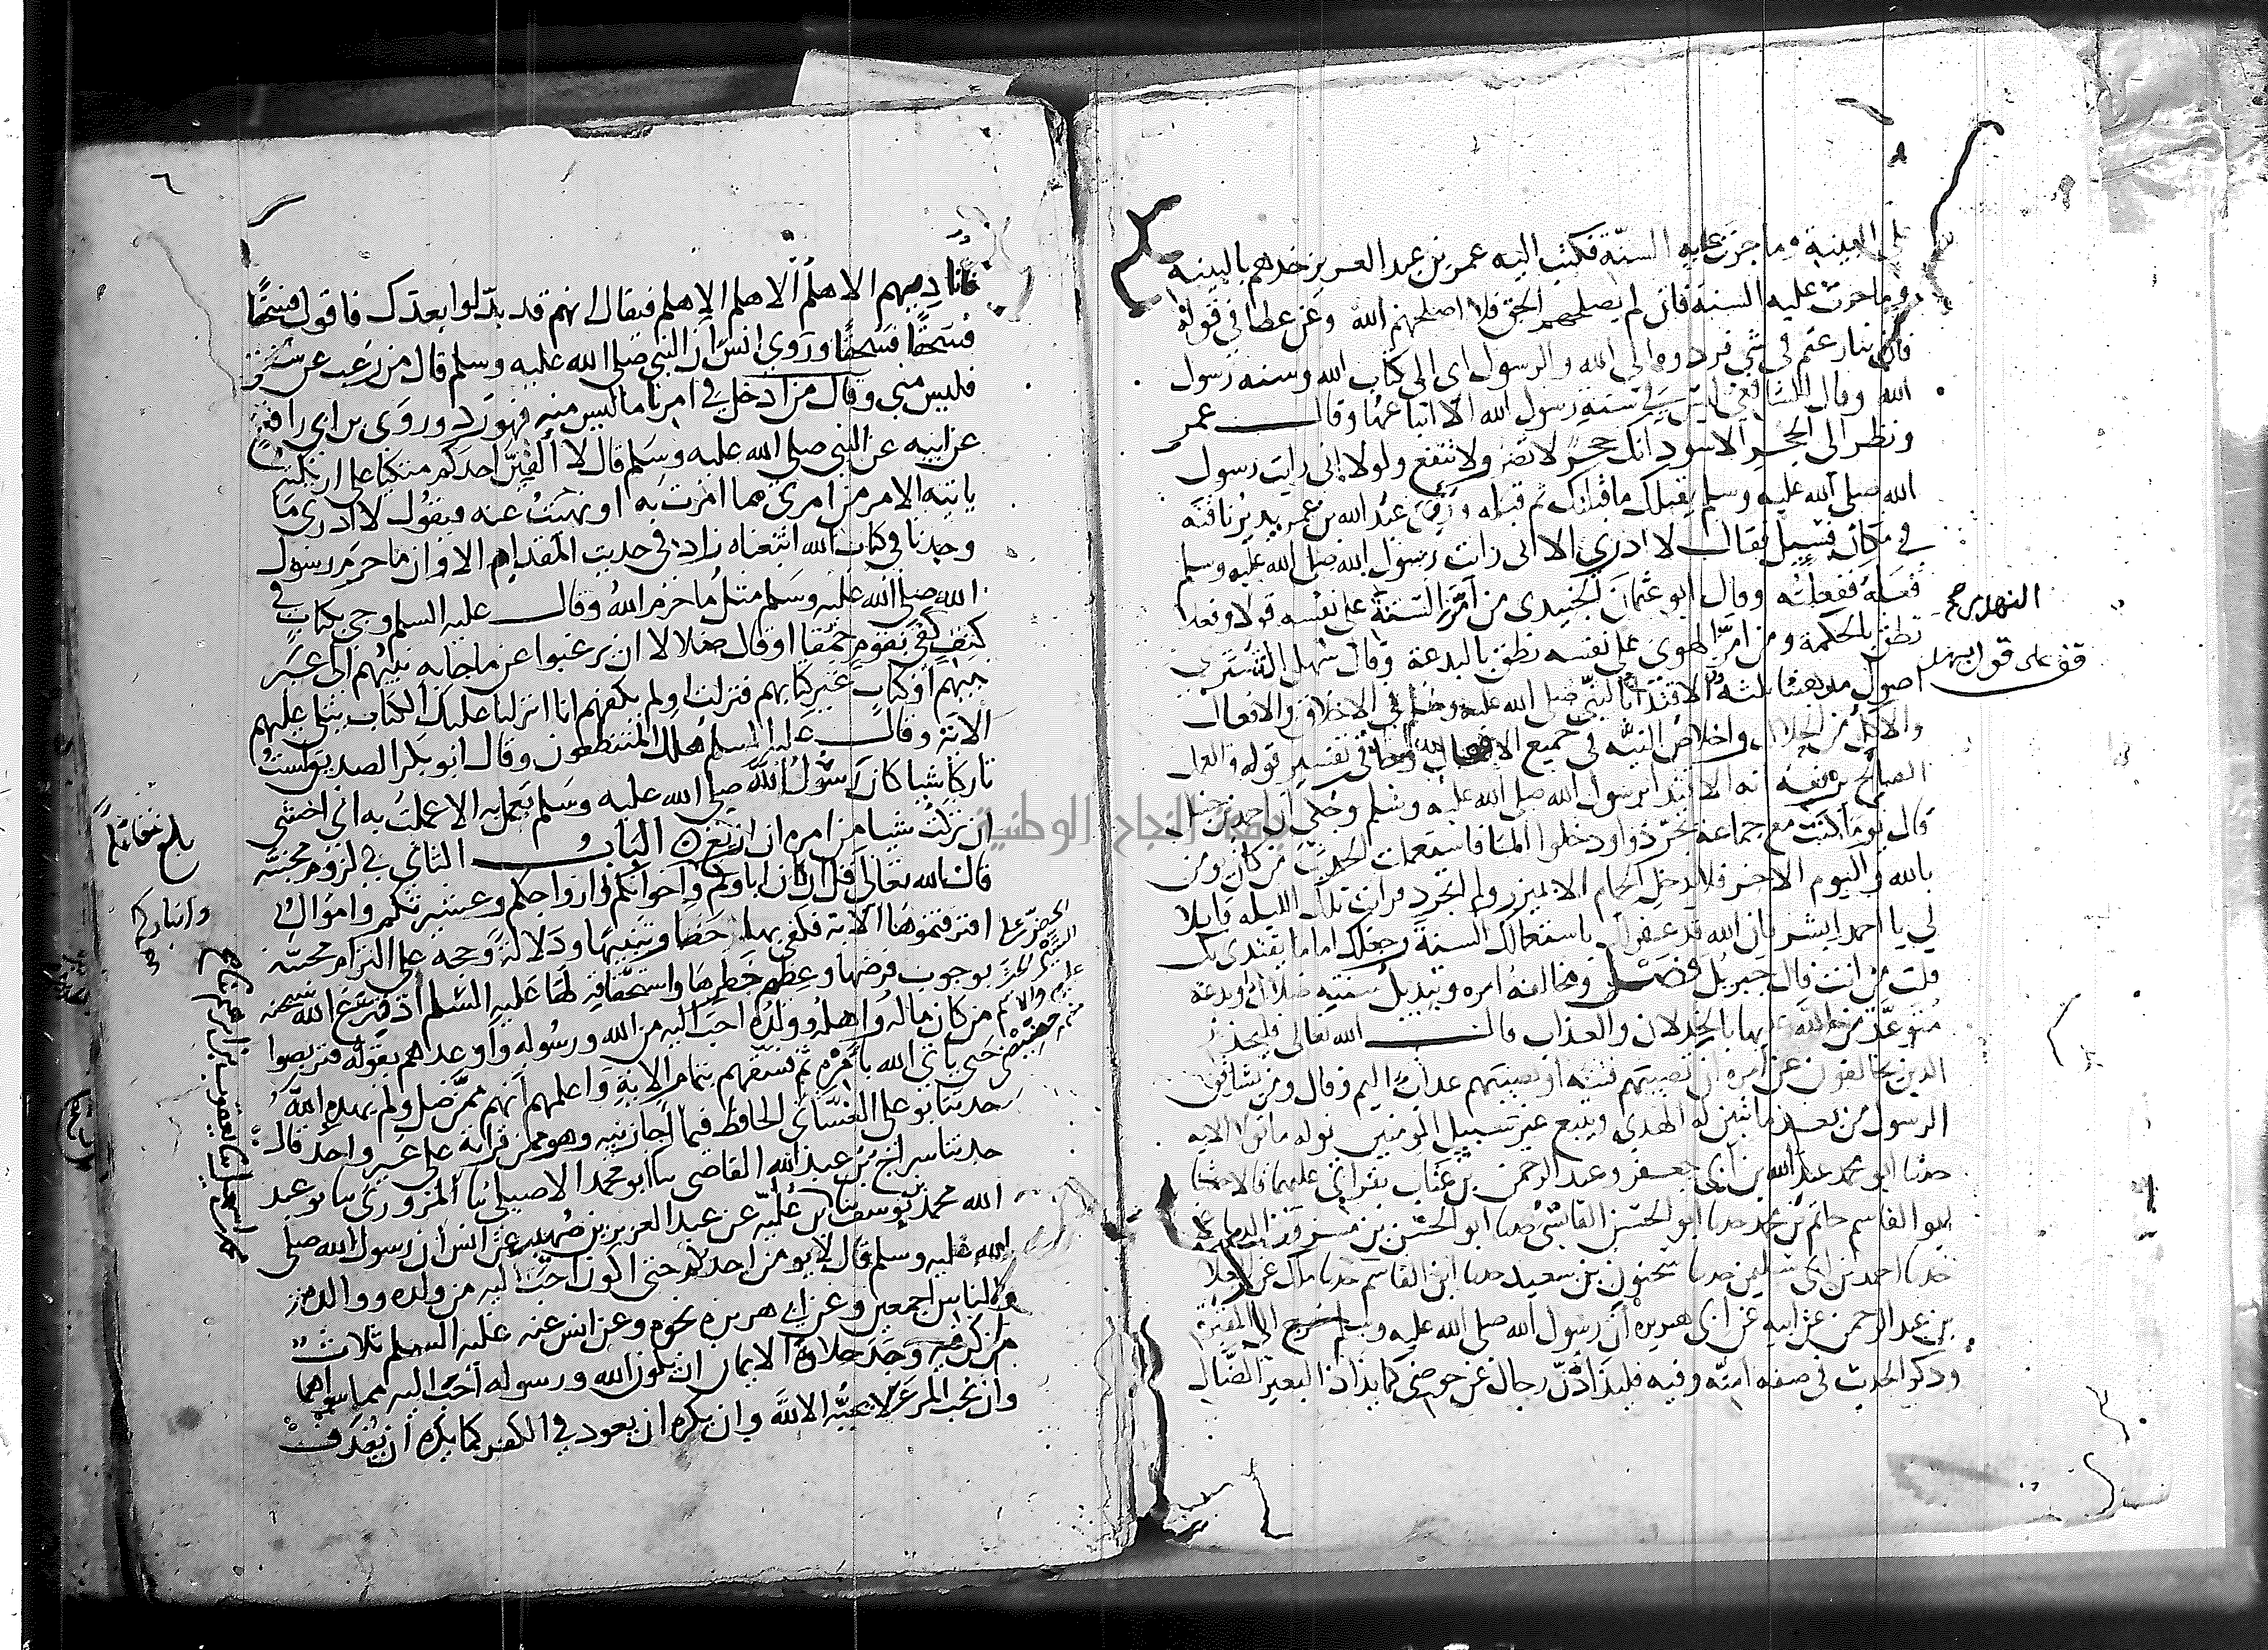 على البينة وما جرت عليه السنة فكتب اليه عمر بن عبد العزيز خذهم بالبينة
وما جرت عليه السنة فان لم يصلحهم الحق فلا اصلحهم الله وعن عطا في قوله
فان تنازعتم في شي فردوه الى الله والرسول اي الى كتاب الله وسنة رسول
الله وقال الشافعي ليس في سنة رسول الله الا اتباعها وقال عمر
ونظر الى الحجر الاسود انك حجر لا تضر ولا تنفع ولولا اني رايت رسول
الله صلى الله عليه وسلم يقبلك ما قبلتك ثم قبله وري عبد الله بن عمر يدير ناقته
في مكان فسيل فقال لا ادري الا اني رايت رسول الله صلى الله عليه وسلم
فعله ففعلته وقال ابو عثمان الحيري من امر السنة على نفسه قولا وفعلا
نطق بالحكمة ومن امر الهوى على نفسه نطق بالبدعة وقال سهل التستري
اصول مذهبنا ثلثة الاقتدا بالنبي صلى الله عليه وسلم في الاخلاق والافعال
والاكل من الحلال واخلاص النية في جميع الاعمال وجا في تفسير قوله والعمل
الصالح يرفعه انه الاقتدا برسول الله صلى الله عليه وسلم وحكي ان احمد بن حنبل
قال يوما كنت مع جماعة تجردوا ودخلوا الما فاستعملت الحديث من كان يومن
بالله واليوم الاخر فلا يدخل الحمام الا بميزر ولم اتجرد فرايت تلك الليلة قايلا
لي يا احمد ابشر فان الله قد غفر لك باستعمالك السنة وجعلك اماما يقتدى بك
قلت من انت قال جبريل فصل ومخالفة امره وتبديل سنته ضلال وبدعة
متوعد من الله عليها بالخذلان والعذاب قال الله تعالى فليحذر
الذين يخالفون عن امره ان تصيبهم فتنة او يصيبهم عذاب اليم وقال ومن يشاقق
الرسول من بعد ما تبين له الهدى ويتبع غير سبيل المومنين نوله ما تولى الاية
حدثنا ابو محمد عبد الله بن ابي جعفر وعبد الرحمن بن عتاب بقراتي عليهما قالا حدثنا
ابو القاسم حاتم بن محمد حدثنا ابو الحسن القابسي حدثنا ابو الحسن بن مسرور الدباغ
حدثنا احمد بن ابي سليمن حدثنا سحنون بن سعيد حدثنا ابن القاسم حدثنا ملك عن العلا
بن عبد الرحمن عن ابيه عن ابي هريرة ان رسول الله صلى الله عليه وسلم خرج الى المقبرة
وذكر الحديث في صفة امته وفيه فليذادن رجال عن حوضي كما يذاد البعير الضال
النهدي صح
قف على قول سهل
٦
فاناديهم الا هلم الا هلم الا هلم فيقال انهم قد بدلوا بعدك فاقول فسحقا
فسحقا فسحقا وروي انس ان النبي صلى الله عليه وسلم قال من رغب عن سنتي
فليس مني وقال من ادخل في امرنا ما ليس منه فهو رد وروى بن ابي رافع
عن ابيه عن النبي صلى الله عليه وسلم قال لا الفين احدكم متكيا على اريكته
ياتيه الامر من امري مما امرت به او نهيت عنه فيقول لا ادري ما
وجدنا في كتاب الله اتبعناه زاد في حديث المقدام الا وان ما حرم رسول
الله صلى الله عليه وسلم مثل ما حرم الله وقال عليه السلم وجي بكتاب في
كتف كفى بقوم حمقا او قال ضلالا ان يرغبوا عن ما جا به نبيهم الى غير
نبيهم او كتاب غير كتابهم فنزلت اولم يكفهم انا انزلنا عليك الكتاب يتلى عليهم
الاية وقال عليه السلم هلك المتنطعون وقال ابو بكر الصديق لست
تاركا شيا كان رسول الله صلى الله عليه وسلم يعمل به الا عملت به اني اخشى
ان تركت شيا من امره ان ازيغ الباب الثاني في لزوم محبته
قال الله تعالى قل ان كان اباوكم وابناوكم واخوانكم وازواجكم وعشيرتكم واموال
اقترفتموها الاية فكفى بهذا حضا وتنبيها ودلالة وحجة على التزام محبته
بوجوب فرضها وعظم خطرها واستحقاقه لها عليه السلم اذ قرع الله
من كان ماله واهله وولده احب اليه من الله ورسوله واوعدهم بقوله فتربصوا
حتى ياتي الله بامره ثم فسقهم بتمام الاية واعلمهم انهم ممن ضل ولم يهده الله
حدثنا ابو علي الغساني الحافظ فيما اجازنيه وهو مما قراته على غير واحد قال
حدثنا سراج بن عبد الله القاضي نا ابو محمد الاصيلي نا المروزي نا ابو عبد
الله محمد بن يوسف نا ابن علية عن عبد العزيز بن صهيب عن انس ان رسول الله صلى
الله عليه وسلم قال لا يومن احدكم حتى اكون احب اليه من ولده ووالده
والناس اجمعين وعن ابي هريرة نحوه وعن انس عنه عليه السلم ثلاث
من كن فيه وجد حلاوة الايمان ان يكون الله ورسوله احب اليه مما سواهما
وان يحب المر لا يحبه الا لله وان يكره ان يعود في الكفر كما يكره ان يقذف
بلغ مقابلة
جامعة النجاح الوطنية